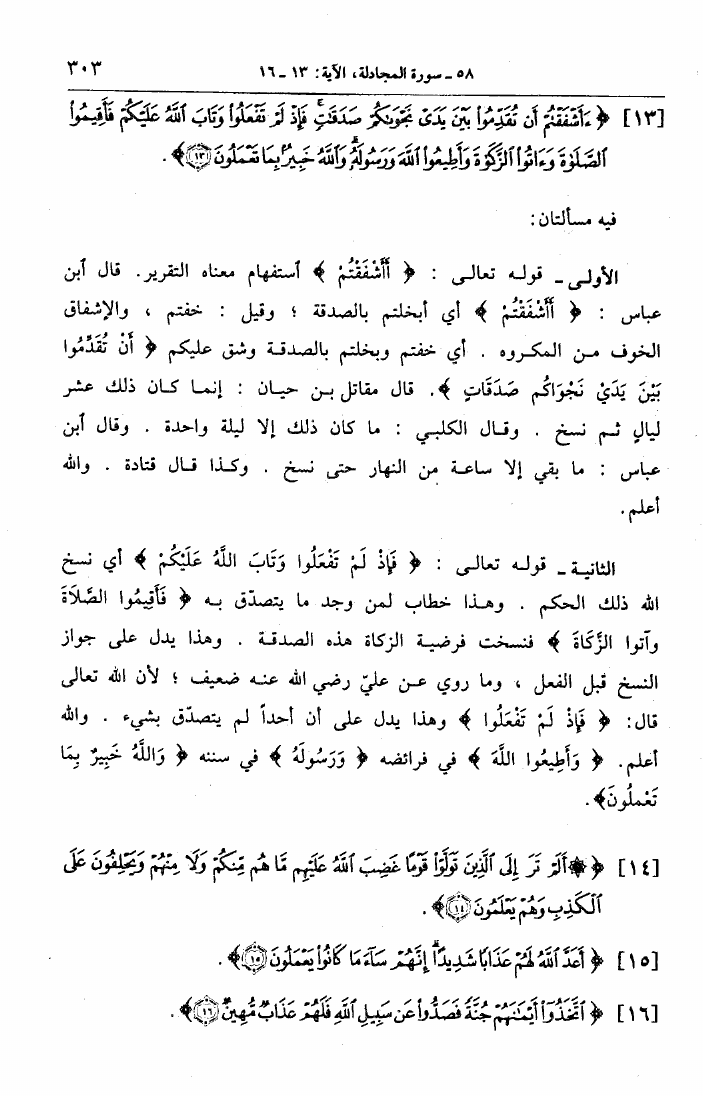 ٥٨ ـ سورة المجادلة، الآية: ١٣ ـ ١٦ ٣٠٣
[١٣] ﴿ ءَأَشْفَقْتُمْ أَن تُقَدِّمُواْ بَيْنَ يَدَىْ نَجْوَىٰكُمْ صَدَقَٰتٍ ۚ فَإِذْ لَمْ تَفْعَلُواْ وَتَابَ ٱللَّهُ عَلَيْكُمْ فَأَقِيمُواْ
ٱلصَّلَوٰةَ وَءَاتُواْ ٱلزَّكَوٰةَ وَأَطِيعُواْ ٱللَّهَ وَرَسُولَهُۥ ۚ وَٱللَّهُ خَبِيرٌۢ بِمَا تَعْمَلُونَ ١٣ ﴾ .
فيه مسألتان:
الأولـى ـ قولـه تعالـى : ﴿ أَأَشْفَقْتُمْ ﴾ ٱستفهام معناه التقرير. قال ٱبن
عباس : ﴿ أَأَشْفَقْتُمْ ﴾ أي أبخلتم بالصدقة ؛ وقيل : خفتم ، والإشفاق
الخوف مـن المكـروه . أي خفتم وبخلتم بالصدقـة وشق عليكم ﴿ أَنْ تُقَدِّمُوا
بَيْنَ يَدَيْ نَجْوَاكُم صَدَقَاتٍ ﴾. قال مقاتل بـن حيـان : إنمـا كـان ذلك عشر
ليالٍ ثـم نسخ . وقـال الكلبـي : ما كان ذلك إلا ليلة واحدة . وقال ٱبن
عباس : ما بقي إلا ساعـة من النهار حتى نسخ . وكـذا قـال قتادة . والله
أعلم.
الثانيـة ـ قولـه تعالـى : ﴿ فَإِذْ لَمْ تَفْعَلُوا وَتَابَ اللَّهُ عَلَيْكُمْ ﴾ أي نسخ
الله ذلك الحكم . وهـذا خطاب لمن وجد ما يتصدّق بـه ﴿ فَأَقِيمُوا الصَّلَاةَ
وآتوا الزَّكَاةَ ﴾ فنسخت فرضيـة الزكاة هذه الصدقـة . وهذا يدل على جواز
النسخ قبل الفعل ، وما روي عـن عليّ رضي الله عنـه ضعيف ؛ لأن الله تعالى
قال: ﴿ فَإِذْ لَمْ تَفْعَلُوا ﴾ وهذا يدل على أن أحداً لم يتصدّق بشيء . والله
أعلم. ﴿ وَأَطِيعُوا اللَّهَ ﴾ في فرائضه ﴿ وَرَسُولَهُ ﴾ في سننه ﴿ وَاللَّهُ خَبِيرٌ بِمَا
تَعْمَلُونَ﴾.
[١٤] ﴿ ۞ أَلَمْ تَرَ إِلَى ٱلَّذِينَ تَوَلَّوْاْ قَوْمًا غَضِبَ ٱللَّهُ عَلَيْهِم مَّا هُم مِّنكُمْ وَلَا مِنْهُمْ وَيَحْلِفُونَ عَلَى
ٱلْكَذِبِ وَهُمْ يَعْلَمُونَ ١٤ ﴾ .
[١٥] ﴿ أَعَدَّ ٱللَّهُ لَهُمْ عَذَابًا شَدِيدًا ۖ إِنَّهُمْ سَآءَ مَا كَانُواْ يَعْمَلُونَ ١٥ ﴾ .
[١٦] ﴿ ٱتَّخَذُوٓاْ أَيْمَٰنَهُمْ جُنَّةً فَصَدُّواْ عَن سَبِيلِ ٱللَّهِ فَلَهُمْ عَذَابٌ مُّهِينٌ ١٦ ﴾ .